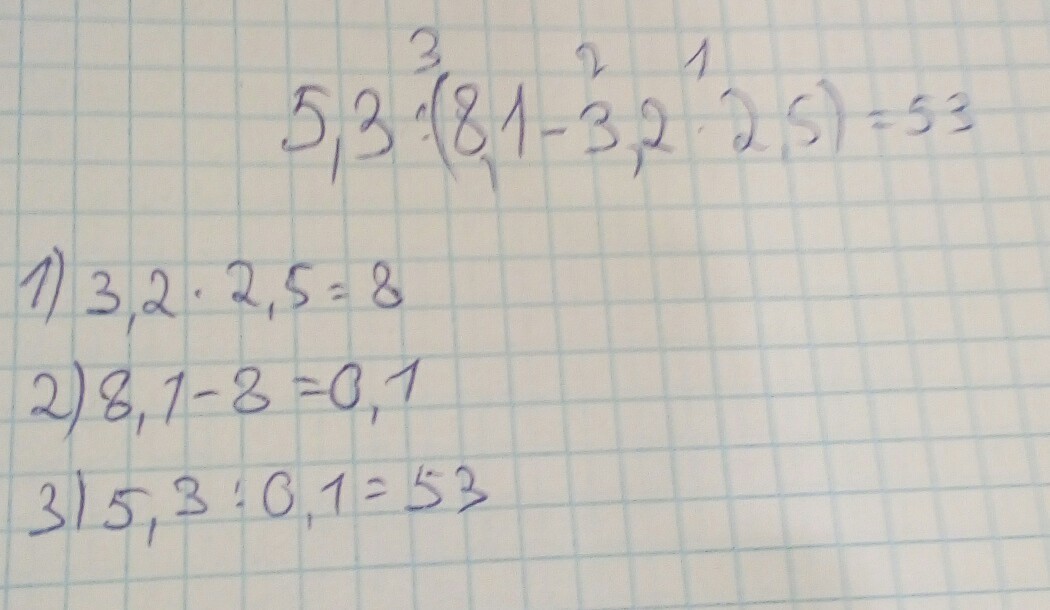 3 2 1
5,3 : (8,1 - 3,2 · 2,5) = 53
1) 3,2 · 2,5 = 8
2) 8,1 - 8 = 0,1
3) 5,3 : 0,1 = 53